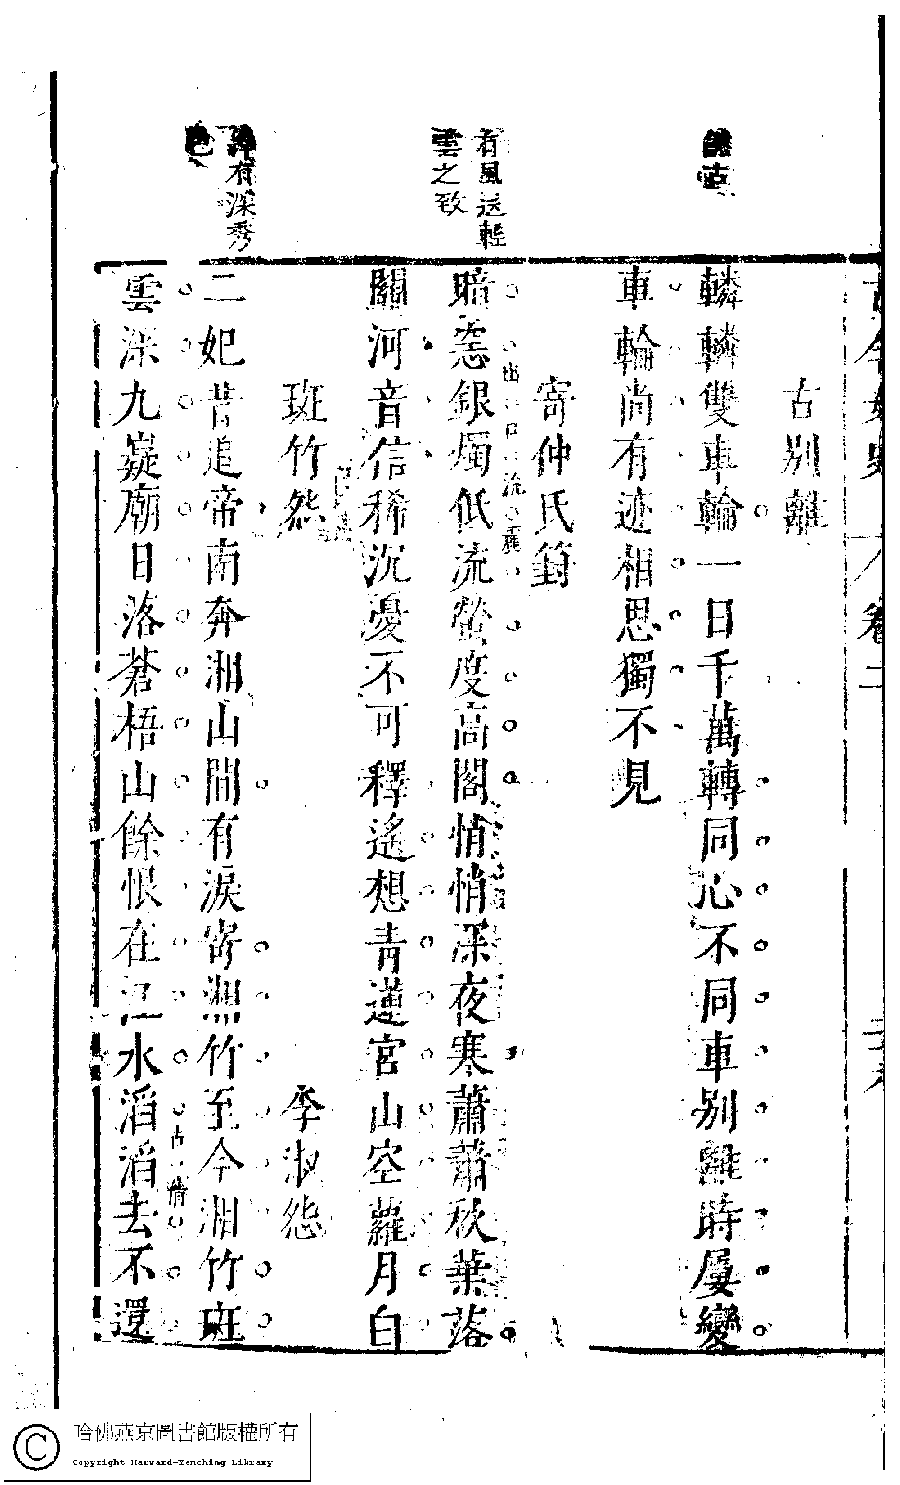 古今女史 卷二
古别離
轔轔雙車輪一日千萬轉同心不同車别離時屢變
車輪尚有迹相思獨不見
寄仲氏箌
暗惡銀燭低流螢度高閣悄悄深夜寒蕭蕭秋葉落
關河音信稀沉憂不可釋遙想青蓮宮山空蘿月白
斑竹怨
李淑怨
二妃昔追帝南奔湘山間有淚寄湘竹至今湘竹斑
雲深九嶷廟日落蒼梧山餘恨在江水滔滔去不還
有風送輕
雲之致
有深秀
色
哈佛燕京圖書館版權所有
Copyright Harvard-Yenching Library